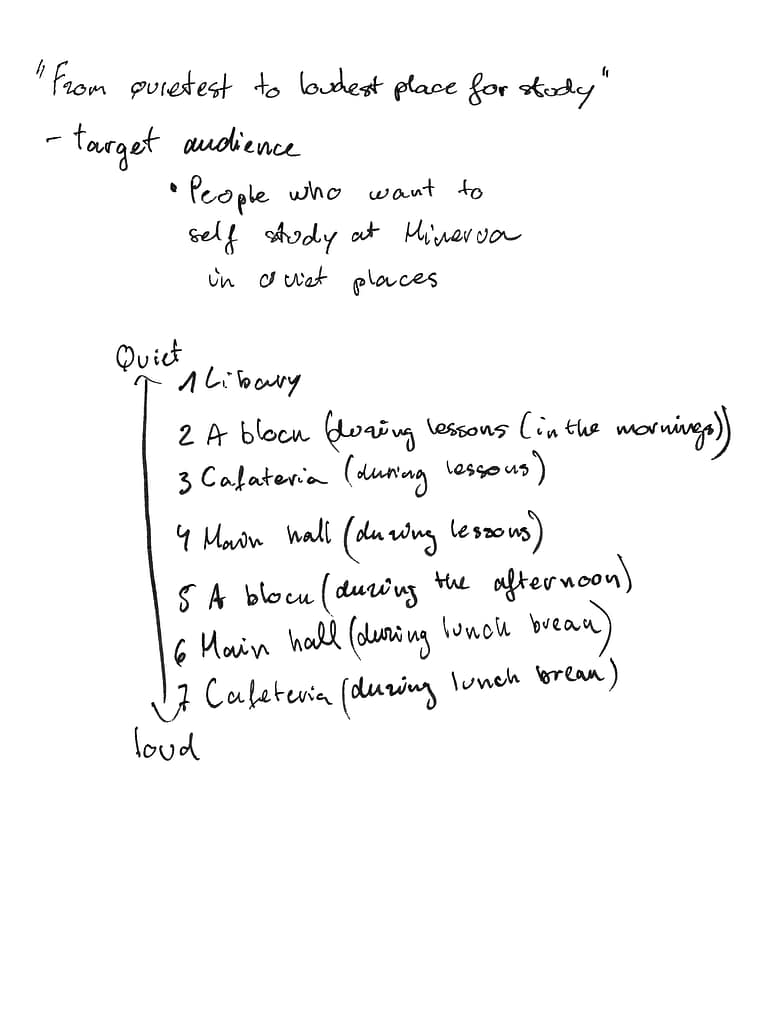 "From quietest to loudest place for study"
- target audience
• People who want to
self study at Minerva
in quiet places
Quiet
1 Library
2 A block (during lessons (in the mornings))
3 Cafateria (during lessons)
4 Main hall (during lessons)
5 A block (during the afternoon)
6 Main hall (during lunch break)
7 Cafeteria (during lunch break)
loud